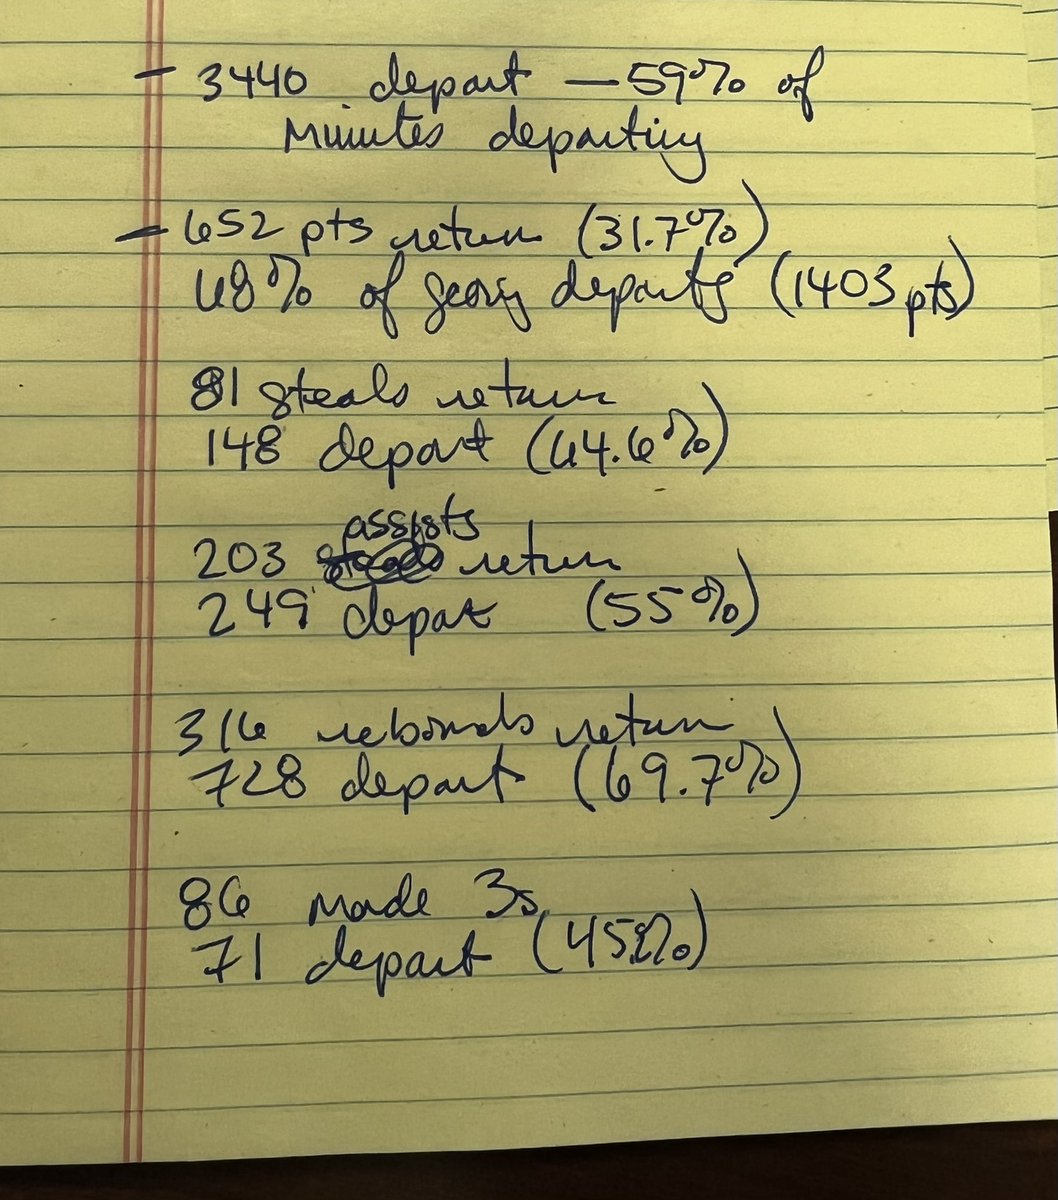 - 3440 depart — 59% of
minutes departing
- 652 pts return (31.7%)
68% of scoring departs (1403 pts)
81 steals return
148 depart (64.6%)
assists
203 return
249 depart (55%)
316 rebounds return
728 depart (69.7%)
86 made 3s
71 depart (45.2%)